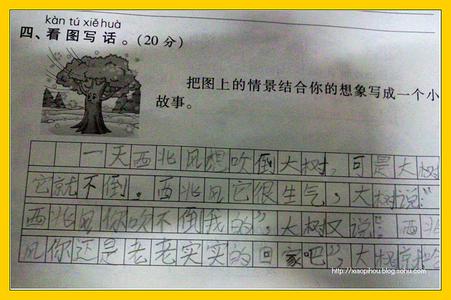 kàn tú xiě huà
四、看图写话。(20分)
把图上的情景结合你的想象写成一个小
故事。
一天西北风想吹倒大树,可是大树
它就不倒。西北风它很生气,大树说:“
西北风你吹不倒我的”,大树又说:“西北
风你还是老老实实的回家吧”,大树就
http://xiaopihou.blog.sohu.com